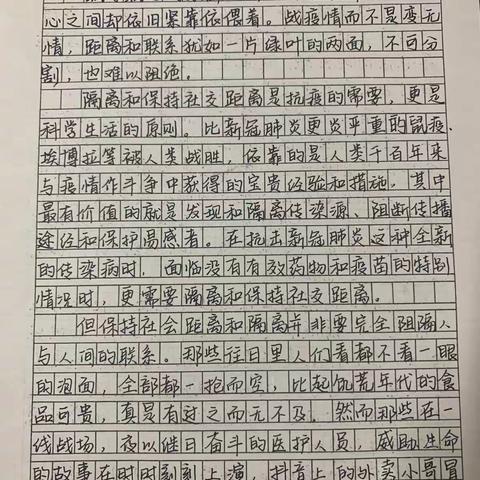 心之间却依旧紧靠依偎着。战疫情而不是变无
情，距离和联系犹如一片绿叶的两面，不可分
割，也难以阻绝。
隔离和保持社交距离是抗疫的需要，更是
科学生活的原则。比新冠肺炎更炎严重的鼠疫、
埃博拉等被人类战胜，依靠的是人类千百年来
与疫情作斗争中获得的宝贵经验和措施，其中
最有价值的就是发现和隔离传染源、阻断传播
途经和保护易感者。在抗击新冠肺炎这种全新
的传染病时，面临没有有效药物和疫苗的特别
情况时，更需要隔离和保持社交距离。
但保持社会距离和隔离并非要完全阻隔人
与人间的联系。那些往日里人们看都不看一眼
的泡面，全部都一抢而空，比起饥荒年代的食
品可贵，真是有过之而无不及。然而那些在一
线战场，夜以继日奋斗的医护人员，威胁生命
的故事在时时刻刻上演，抖音上的外卖小哥冒